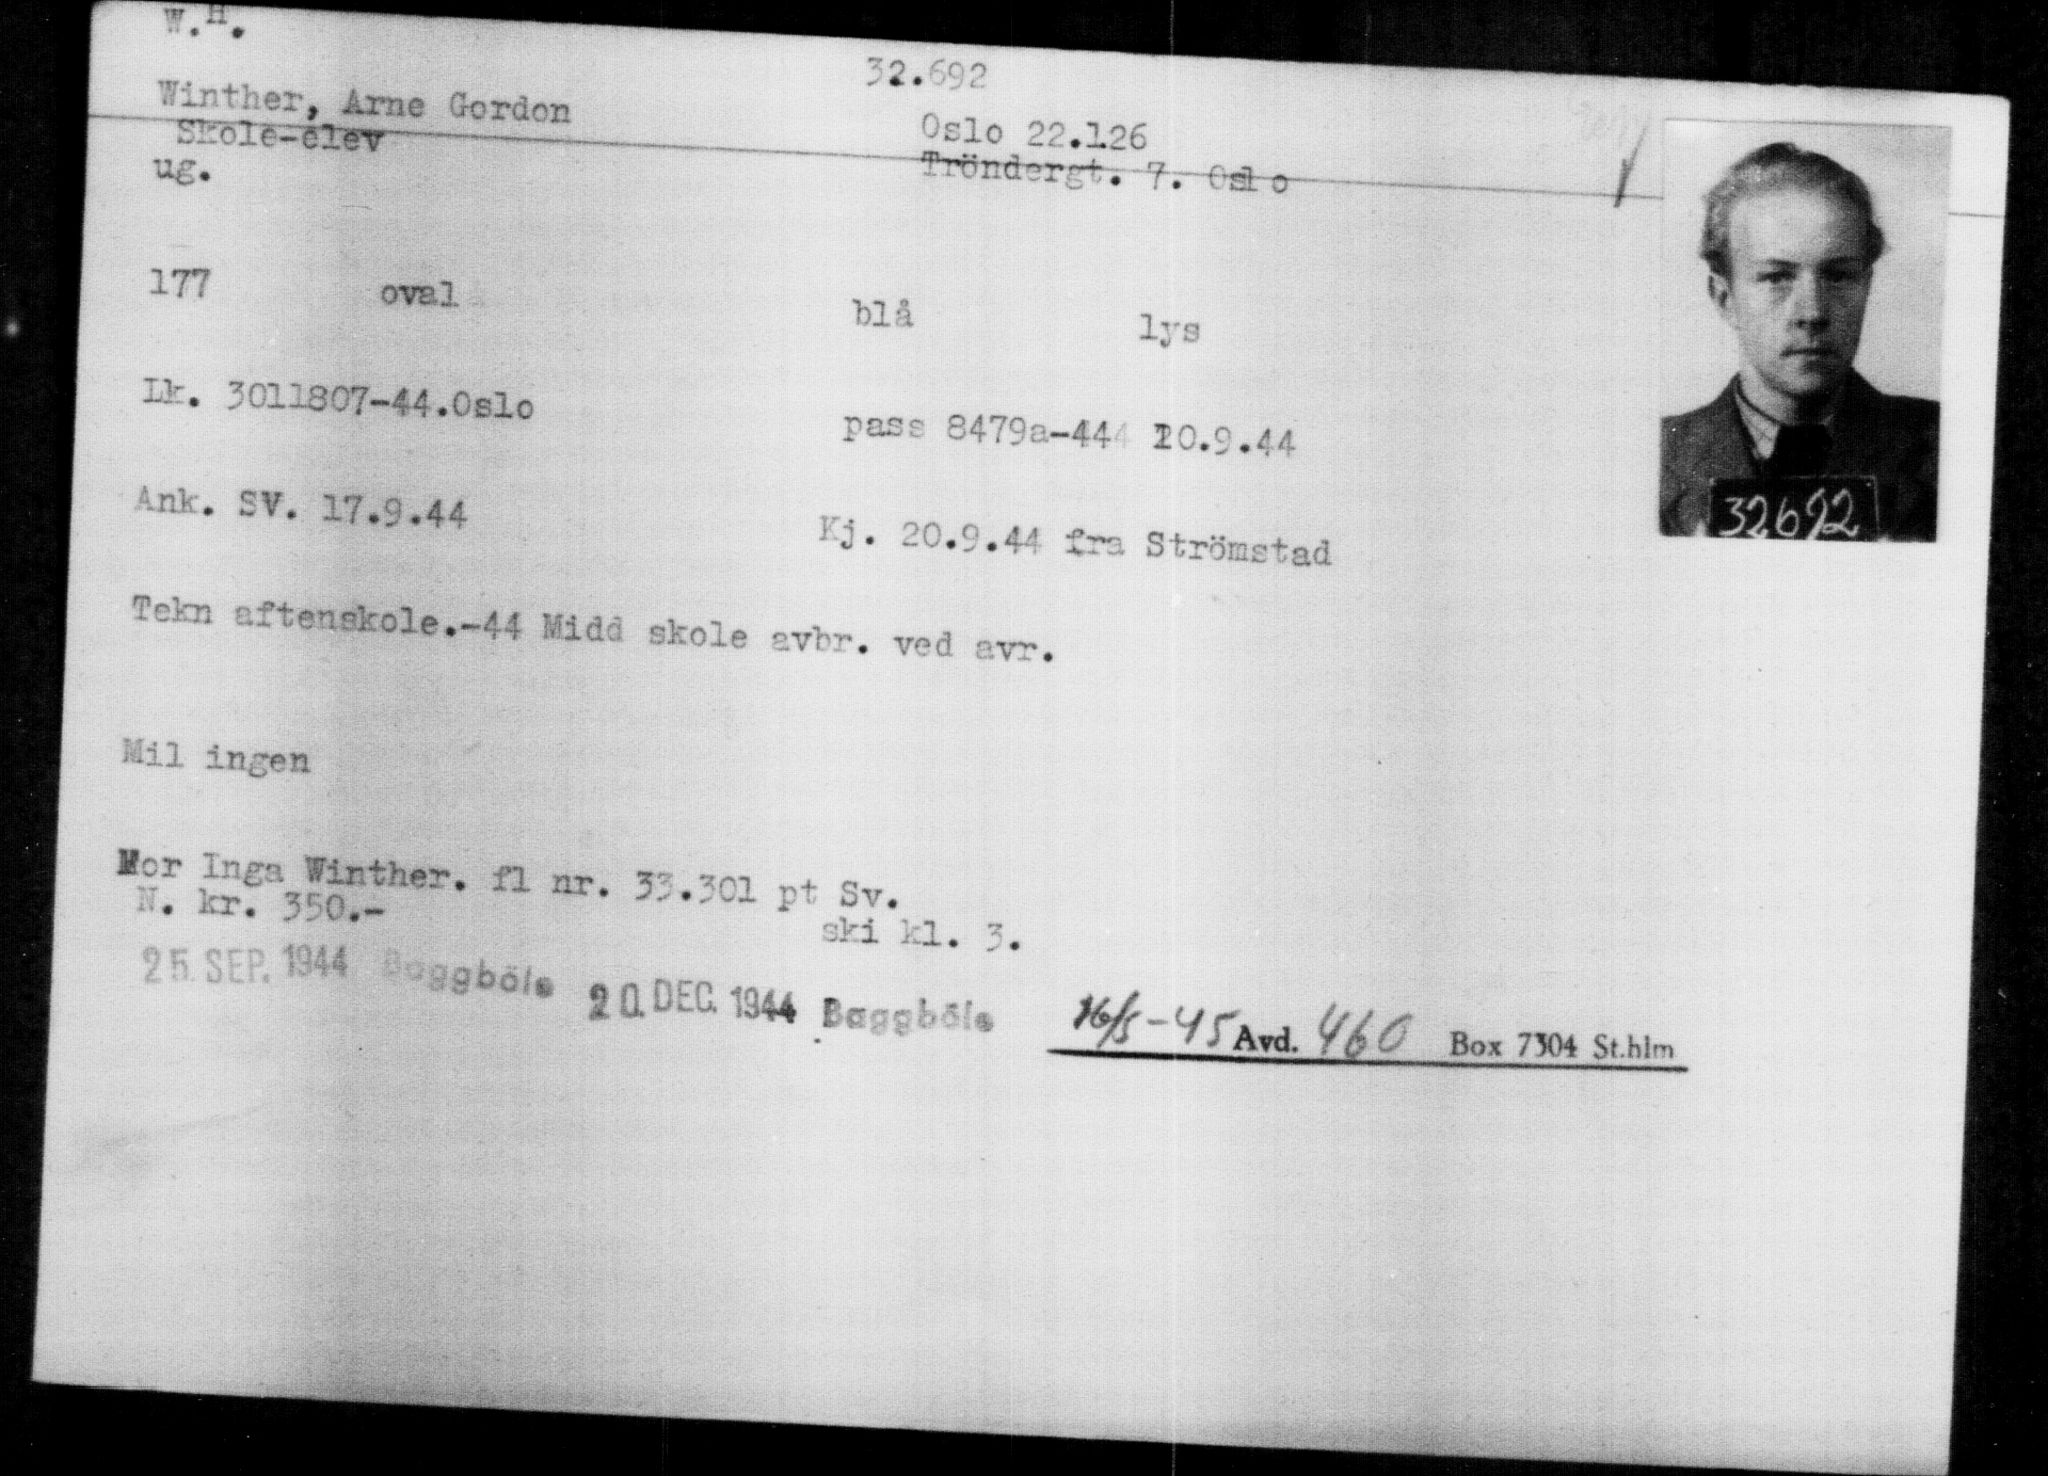 W.H.
32.692
Winther, Arne Gordon
Oslo 22.1.26
Skole-elev
Tröndergt. 7. Oslo
ug.
177 oval blå lys
Lk. 3011807-44.Oslo
pass 8479a-444 20.9.44
Ank. SV. 17.9.44
Kj. 20.9.44 fra Strömstad
Tekn aftenskole.-44 Midd skole avbr. ved avr.
Mil ingen
Mor Inga Winther. fl nr. 33.301 pt Sv.
N. kr. 350.-
ski kl. 3.
25. SEP. 1944 Baggböle 20. DEC. 1944 Baggböle
16/5-45 Avd. 460 Box 7304 St.hlm
32692